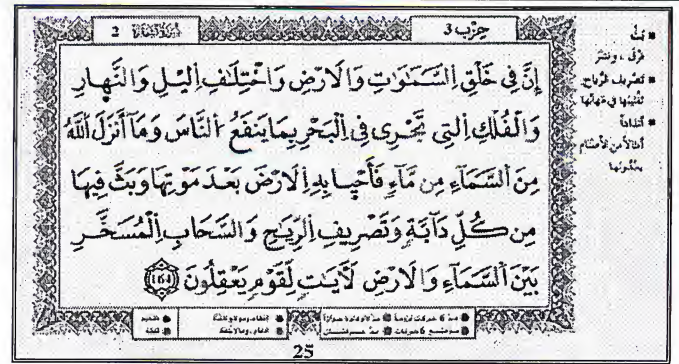 سُورَةُ البَقَرَة 2
حِزْب 3
إِنَّ فِي خَلْقِ اِ۬لسَّمَٰوَٰتِ وَالَارْضِ وَاخْتِلَٰفِ اِ۬ليْلِ وَالنَّهارِ
وَالْفُلْكِ اِ۬لتِي تَجْرِي فِي اِ۬لْبَحْرِ بِمَا يَنفَعُ اُ۬لنَّاسَ وَمَآ أَنزَلَ اَ۬للَّهُ
مِنَ اَ۬لسَّمَآءِ مِن مَّآءٖ فَأَحْيا بِهِ اِ۬لَارْضَ بَعْدَ مَوْتِهَا وَبَثَّ فِيهَا
مِن كُلِّ دَآبَّةٖ وَتَصْرِيفِ اِ۬لرِّيَٰحِ وَالسَّحَابِ اِ۬لْمُسَخَّرِ
بَيْنَ اَ۬لسَّمَآءِ وَالَارْضِ لَأٓيَٰتٖ لِّقَوْمٖ يَعْقِلُونَ 164
بَثَّ
فرّق، ونشر
تصريف الرياح
تقليبها في مهابّها
أندادًا
أمثالًا من الأصنام
يعبدونها
25